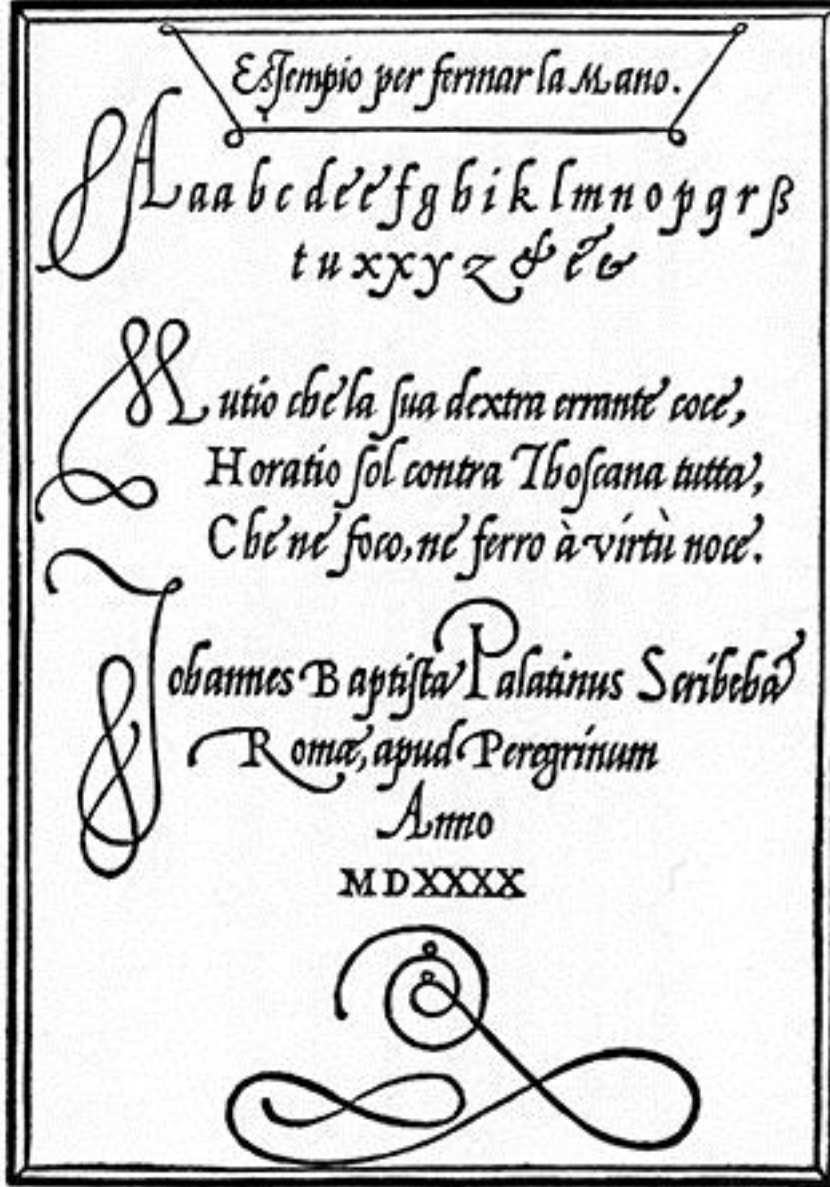 Essempio per fermar la Mano.
A a a b c d e e f g h i k l m n o p q r ſs
t u x x y z & & &
Mutio che la ſua dextra errante coce,
Horatio ſol contra Thoſcana tutta,
Che ne foco, ne ferro à virtù noce.
Iohannes Baptiſta Palatinus Scribebat
Romæ, apud Peregrinum
Anno
MDXXXX